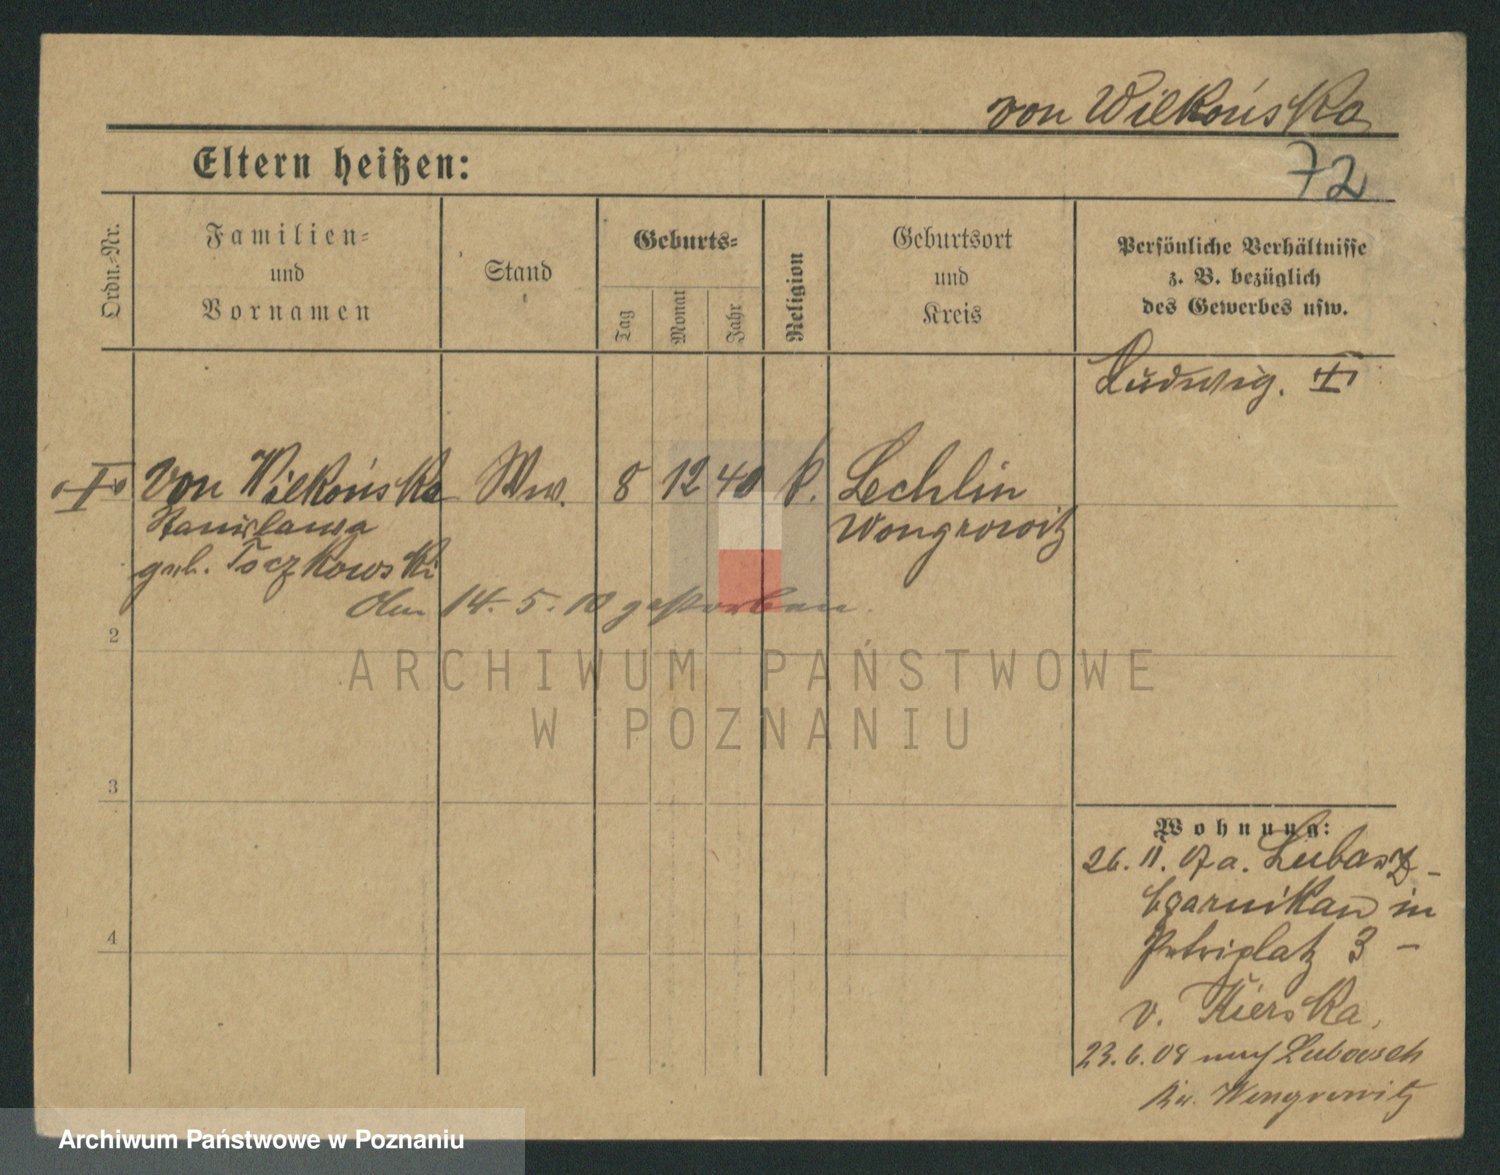 von Wilkońska
Eltern heißen:
72
Ordn.-Nr.
Familien-
und
Vornamen
Stand
Geburts-
Tag
Monat
Jahr
Religion
Geburtsort
und
Kreis
Persönliche Verhältnisse
z. B. bezüglich
des Gewerbes usw.
Ludwig. †
† von Wilkońska Ww. 8 12 40 k. Lechlin
Stanislawa Wongrowitz
geb. Toczkowski
den 14. 5. 10 gestorben.
2
ARCHIWUM PAŃSTWOWE
W POZNANIU
3
4
Wohnung:
26. 11. 07 a. Lubasz-
Czarnikau in
Petriplatz 3 -
v. Kierska.
23. 6. 08 nach Lubasch
Kr. Wongrowitz
Archiwum Państwowe w Poznaniu